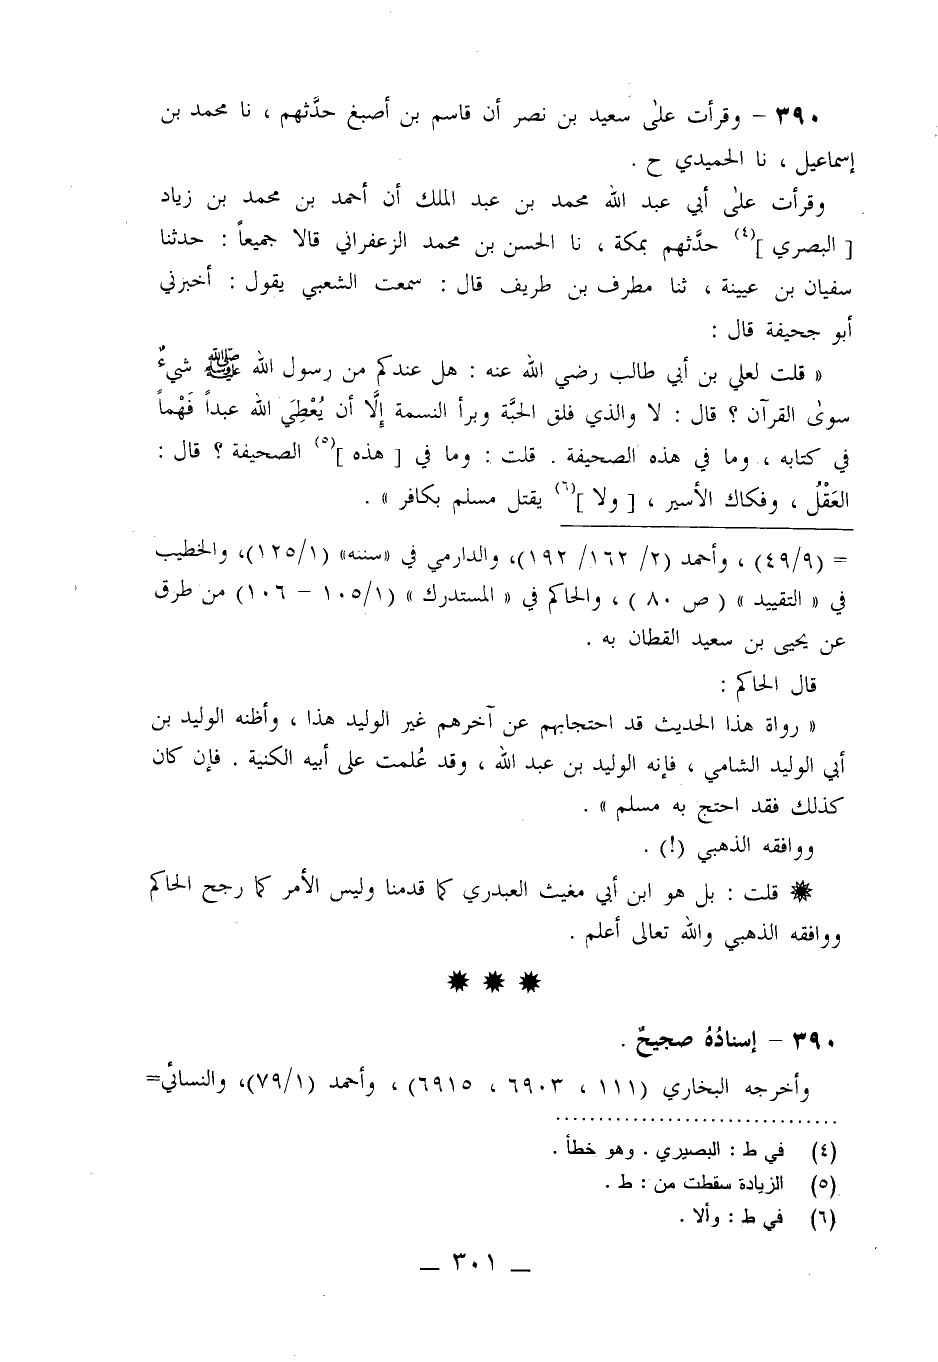 ٣٩٠ - وقرأت علىٰ سعيد بن نصر أن قاسم بن أصبغ حدَّثهم ، نا محمد بن
إسماعيل ، نا الحميدي ح .
وقرأت علىٰ أبي عبد الله محمد بن عبد الملك أن أحمد بن محمد بن زياد
[ البصري ](٤) حدَّثهم بمكة ، نا الحسن بن محمد الزعفراني قالا جميعاً : حدثنا
سفيان بن عيينة ، ثنا مطرف بن طريف قال : سمعت الشعبي يقول : أخبرني
أبو جحيفة قال :
« قلت لعلي بن أبي طالب رضي الله عنه : هل عندكم من رسول الله ﷺ شيءٌ
سوىٰ القرآن ؟ قال : لا والذي فلق الحبَّة وبرأ النسمة إلَّا أن يُعْطِيَ الله عبداً فَهْماً
في كتابه ، وما في هذه الصحيفة . قلت : وما في [ هذه ](٥) الصحيفة ؟ قال :
العَقْلُ ، وفكاك الأسير ، [ ولا ](٦) يقتل مسلم بكافر » .
= (٤٩/٩) ، وأحمد (٢/ ١٦٢/ ١٩٢)، والدارمي في «سننه» (١٢٥/١)، والخطيب
في « التقييد » ( ص ٨٠ ) ، والحاكم في « المستدرك » (١٠٥/١ - ١٠٦) من طرق
عن يحيى بن سعيد القطان به .
قال الحاكم :
« رواة هذا الحديث قد احتجابهم عن آخرهم غير الوليد هذا ، وأظنه الوليد بن
أبي الوليد الشامي ، فإنه الوليد بن عبد الله ، وقد عُلمت على أبيه الكنية . فإن كان
كذلك فقد احتج به مسلم » .
ووافقه الذهبي (!) .
✹ قلت : بل هو ابن أبي مغيث العبدري كما قدمنا وليس الأمر كما رجح الحاكم
ووافقه الذهبي والله تعالى أعلم .
✹ ✹ ✹
٣٩٠ - إسنادُهُ صحيحٌ .
وأخرجه البخاري (١١١ ، ٦٩٠٣ ، ٦٩١٥) ، وأحمد (٧٩/١)، والنسائي=
(٤) في ط : البصيري . وهو خطأ .
(٥) الزيادة سقطت من : ط .
(٦) في ط : وألا .
_ ٣٠١ _